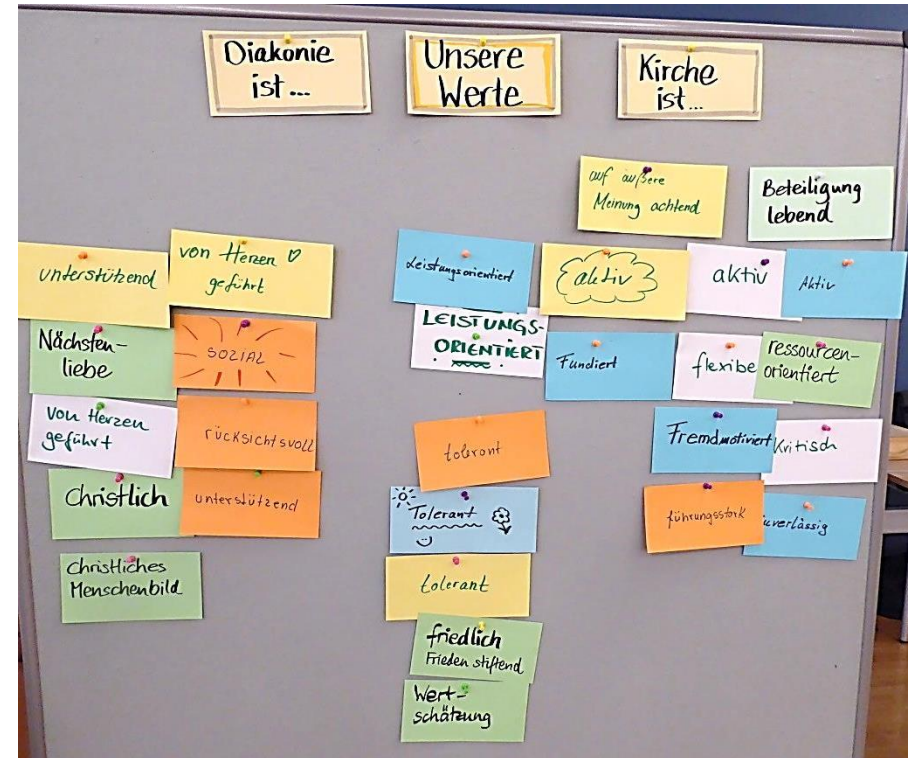 Diakonie
ist...
Unsere
Werte
Kirche
ist...
unterstützend
von Herzen
geführt
Nächsten-
liebe
SOZIAL
von Herzen
geführt
rücksichtsvoll
Christlich
unterstützend
Christliches
Menschenbild
Leistungsorientiert
LEISTUNGS-
ORIENTIERT
tolerant
Tolerant
tolerant
friedlich
Frieden stiftend
Wert-
schätzung
auf äußere
Meinung achtend
Beteiligung
lebend
aktiv
aktiv
Aktiv
Fundiert
flexibe
ressourcen-
orientiert
Fremdmotiviert
Kritisch
führungsstark
zuverlässig